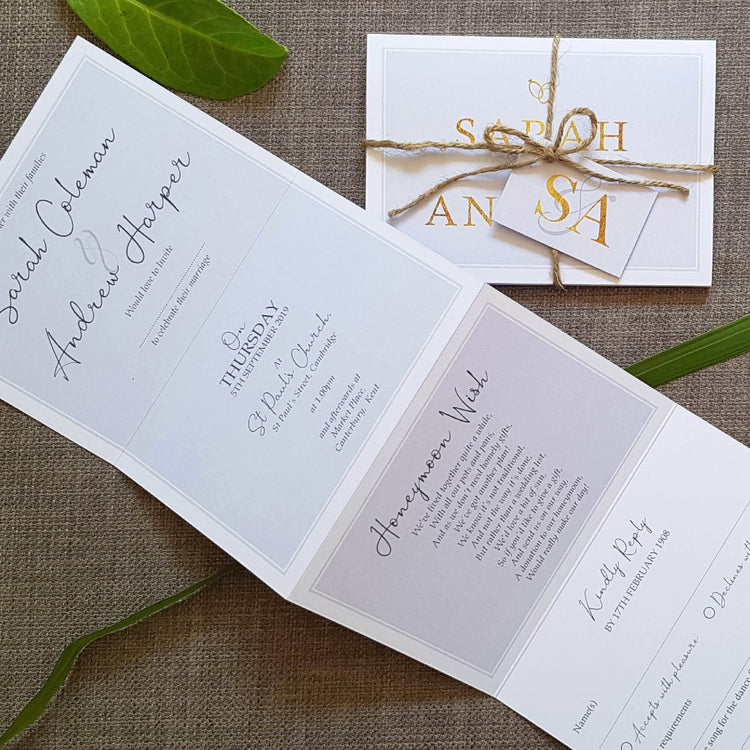 with their families
Sarah Coleman
&
Andrew Harper
Would love to Invite
to celebrate their marriage
On
THURSDAY
5TH SEPTEMBER 2019
AT
St Paul's Church,
St Paul's Street, Cambridge
at 1.00pm
and afterwords at
Market Place,
Canterbury, Kent
Honeymoon Wish
We've lived together quite a while,
With all our pots and pans,
And as we don't need homely gifts,
We've got another plan!
We know it's not traditional,
And not the way it's done,
But rather than a wedding list,
We'd love a bit of sun,
So if you'd like to give a gift,
And send us on our way,
A donation to our honeymoon,
Would really make our day!
Kindly Reply
BY 17TH FEBRUARY 1908
Name(s)
Accepts with pleasure
Declines with
requirements
song for the dance
SARAH
AN
S&A